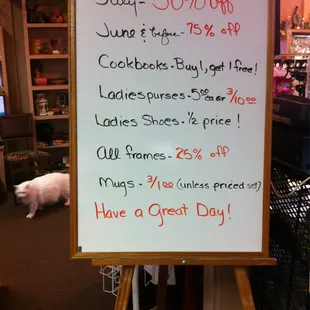 July - 50% off
June & before - 75% off
Cookbooks - Buy 1, get 1 free!
Ladies purses - 5.00 ea or 3/10.00
Ladies Shoes - 1/2 price!
All frames - 25% off
Mugs - 3/1.00 (unless priced set)
Have a Great Day!